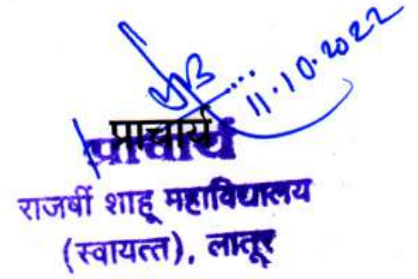 11.10.2022
प्राचार्य
प्राचार्य
राजर्षी शाहू महाविद्यालय
(स्वायत्त), लातूर